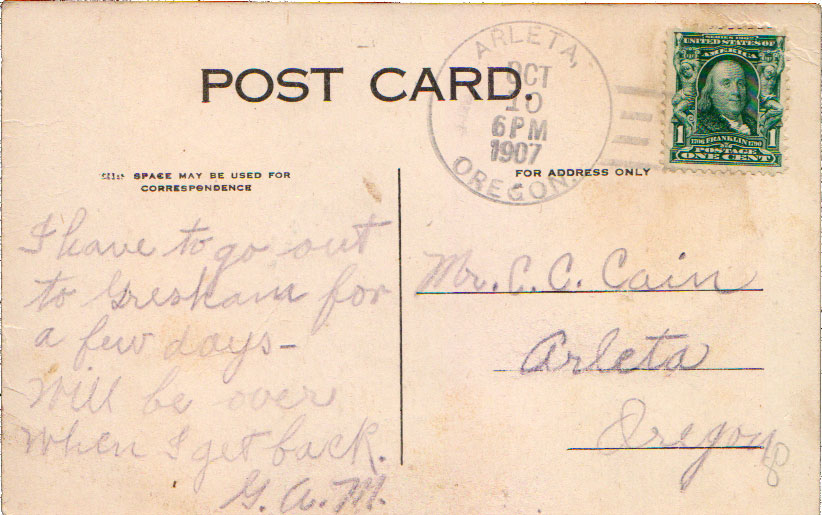 POST CARD.
ARLETA,
OCT
10
6 PM
1907
OREGON.
SERIES 1902
UNITED STATES OF
AMERICA
1 1
1706 FRANKLIN 1790
POSTAGE
ONE CENT
SPACE MAY BE USED FOR
CORRESPONDENCE
FOR ADDRESS ONLY
I have to go out
to Gresham for
a few days–
Will be over
When I get back.
G. A. M.
Mr. C. C. Cain
Arleta
Oregon